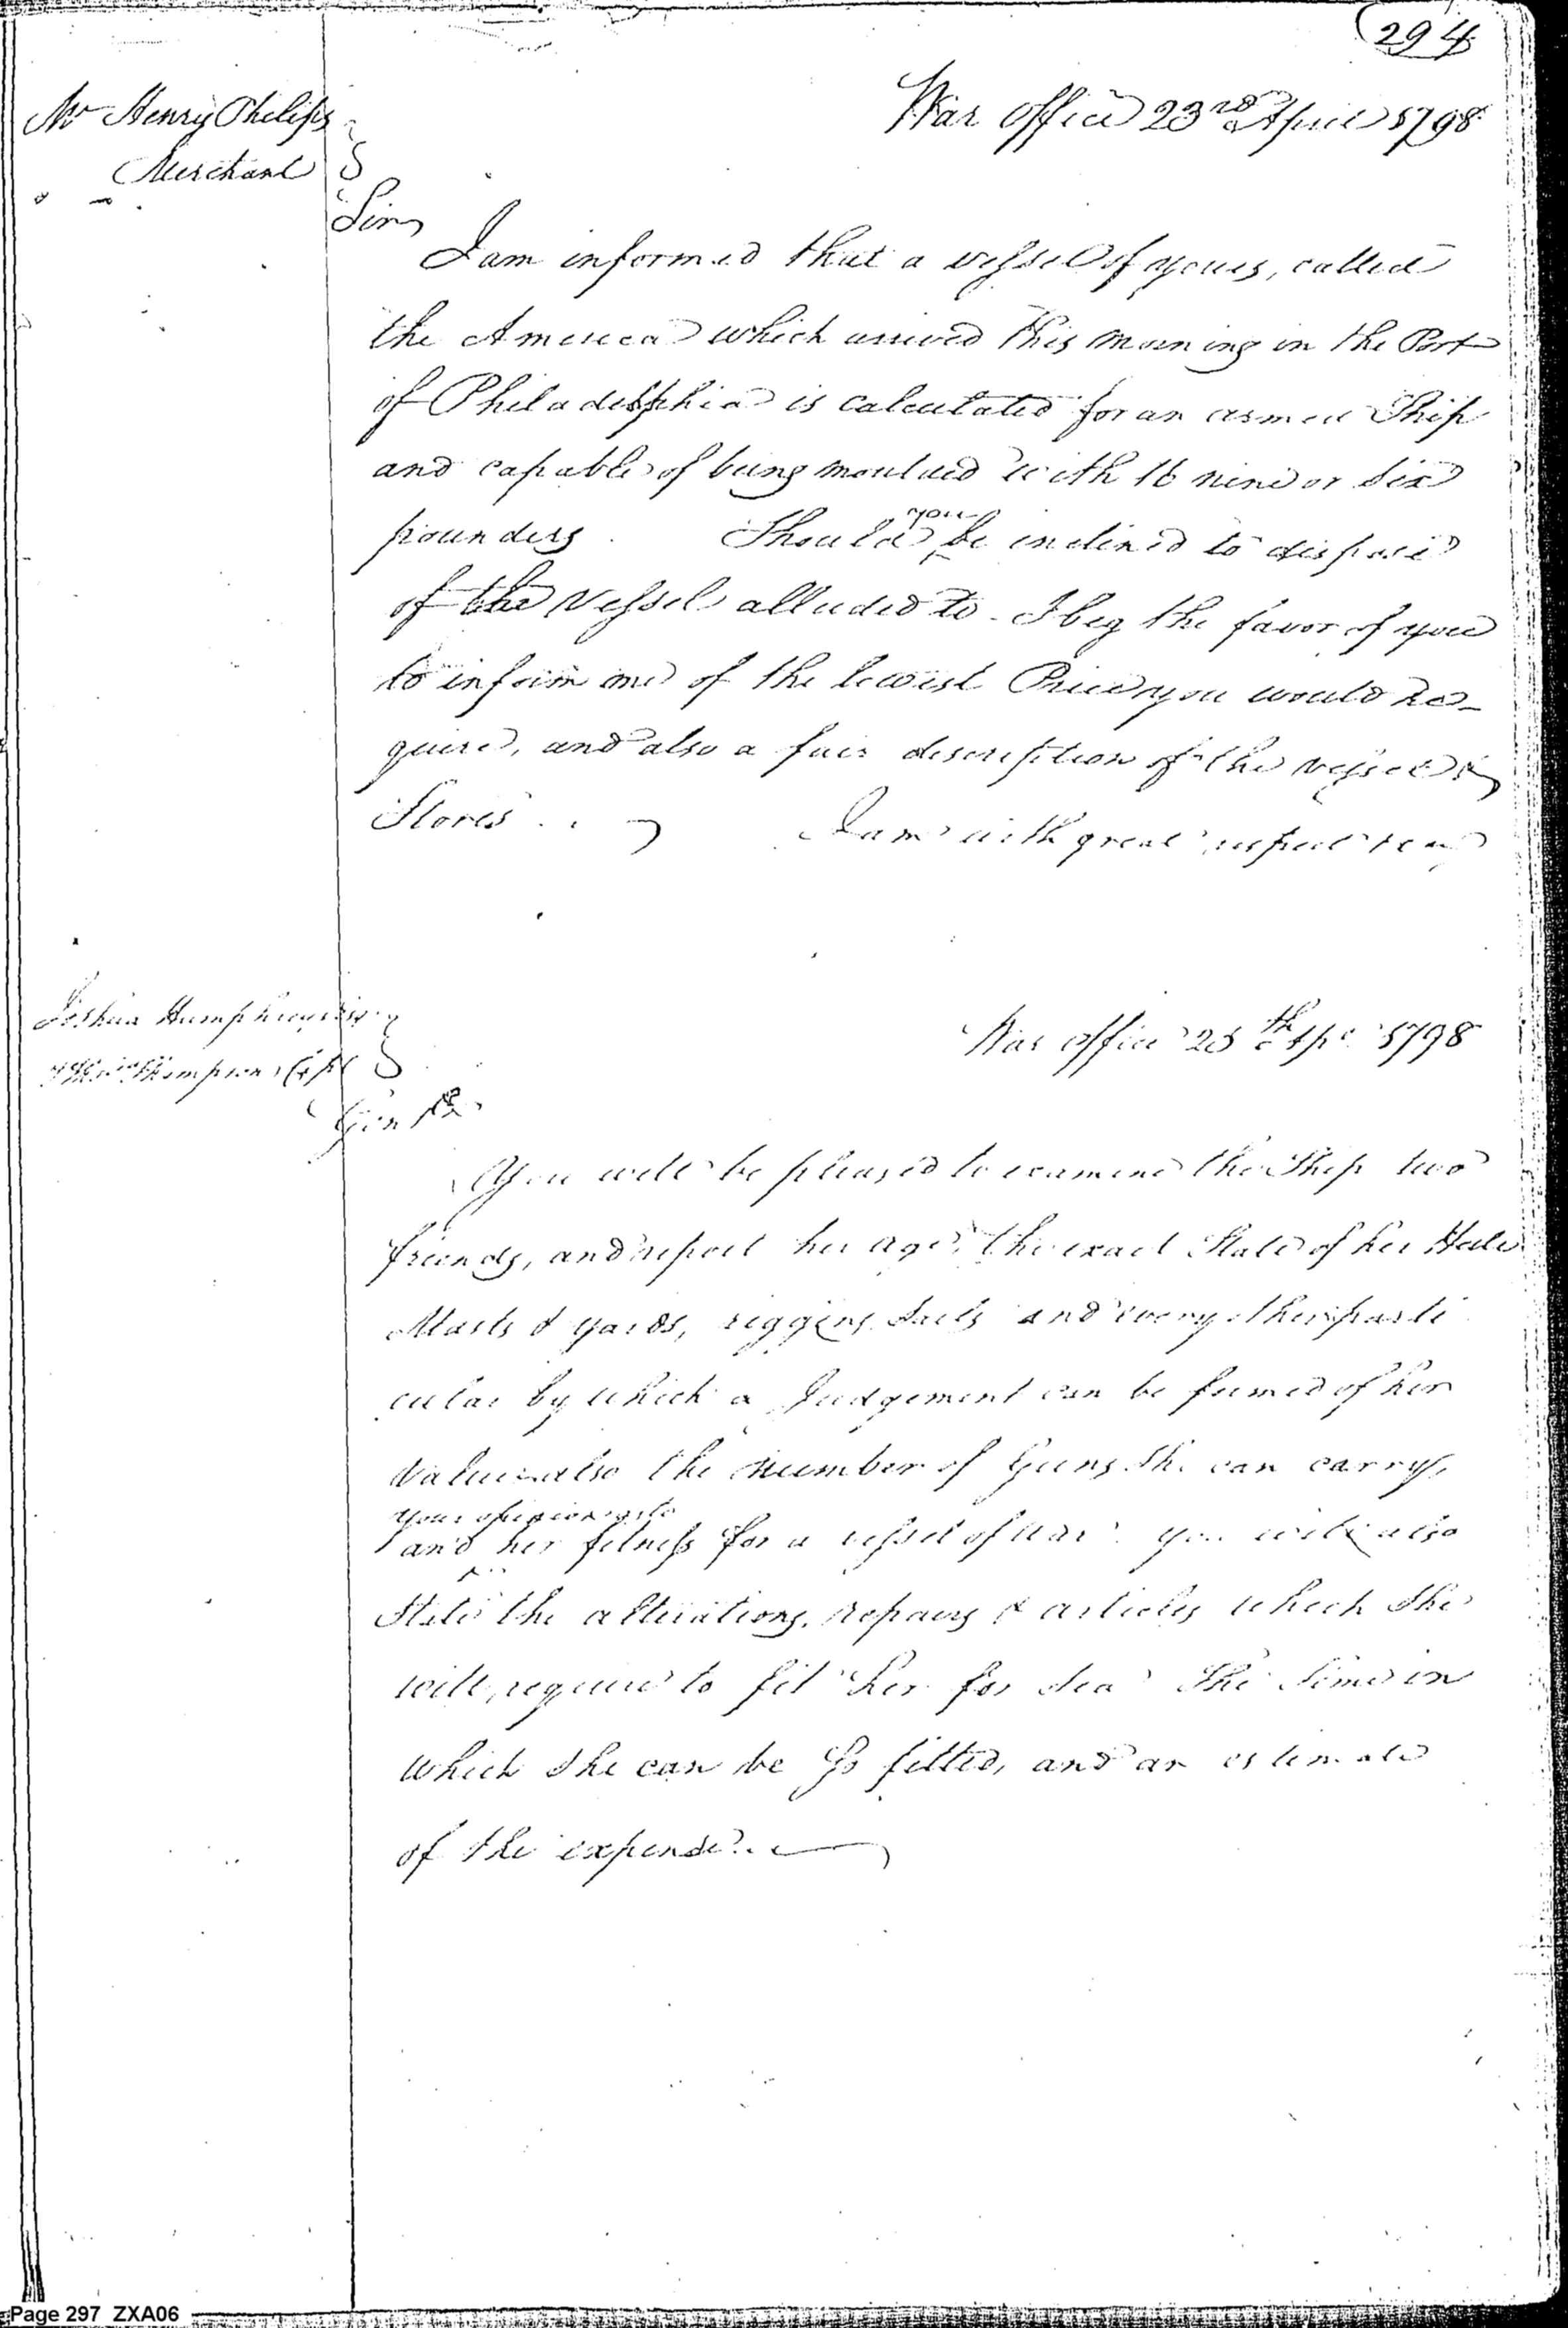 294
War office 23rd April 1798
Mr Henry Philips
Merchant
Sir
I am informed that a vessel of yours, called
the America which arrived this morning in the Port
of Philadelphia is calculated for an armed Ship
and capable of being mounted with 16 nine or six
pounders. Should you be inclined to dispose
of the Vessel alluded to. I beg the favor of you
to inform me of the lowest Price you would re-
quire, and also a fair description of the vessel &
Stores
I am with great respect
War office 25th Apl 1798
Joshua Humphreys
Thompson
Gentn
You will be pleased to examine the Ship two
friends, and report her age, the exact State of her Hull
Masts & yards, rigging Sails and every other parti
cular by which a Judgement can be formed of her
Value also the number of Guns She can carry,
your opinion as to
and her fitness for a vessel of war. you will also
State the alterations, repairs & articles which She
will require to fit her for Sea The time in
which She can be So fitted, and an estimate
of the expense.
Page 297 ZXA06